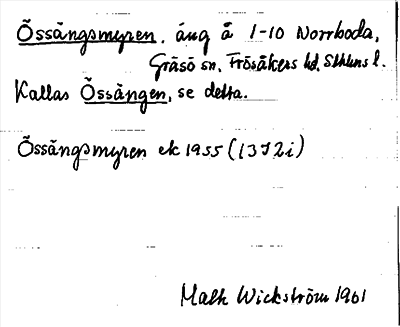 Össängsmyren. äng å 1-10 Norrboda,
Gräsö sn. Frösåkers hd. Sthlms l.
Kallas Össängen, se detta.
Össängsmyren ek 1955 (13J2i)
Wickström 1961